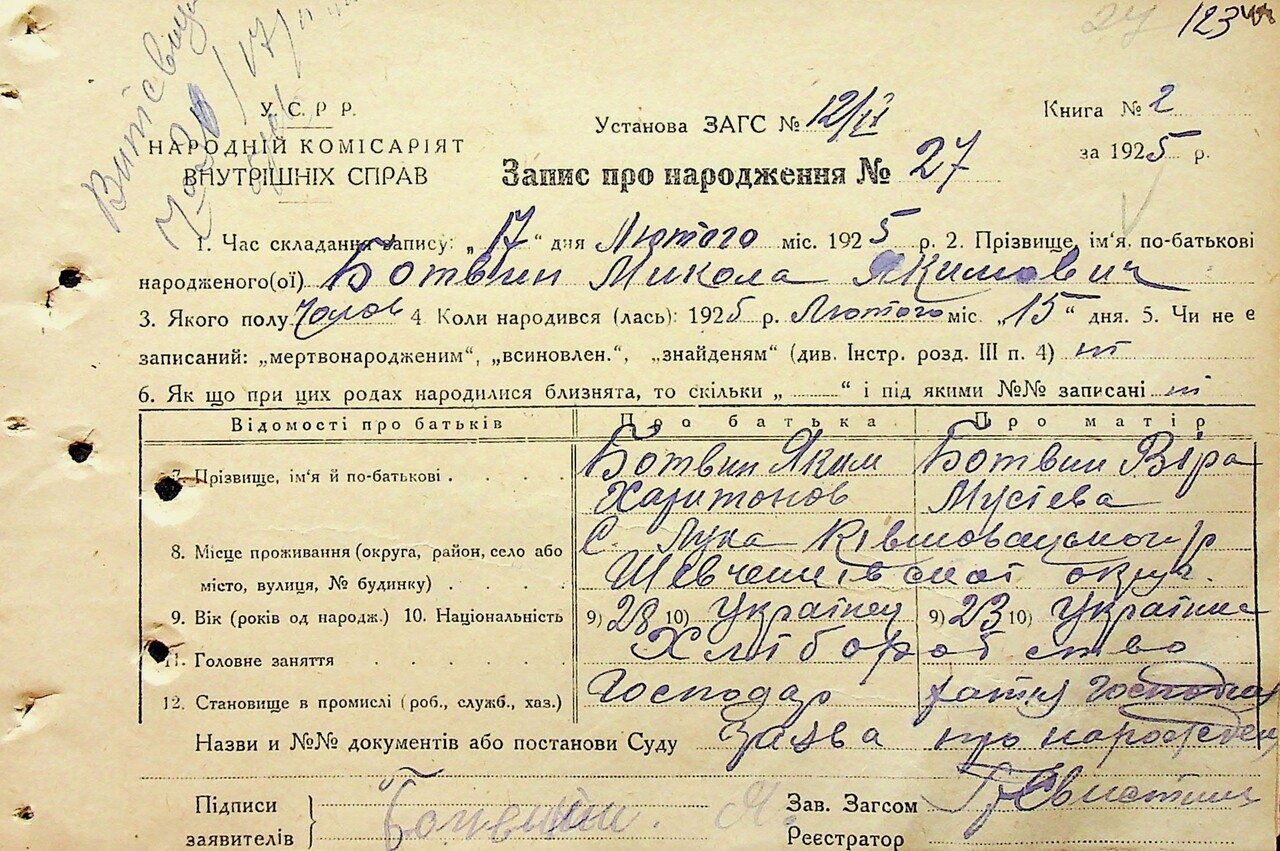 27 123
У. С. Р. Р.
НАРОДНІЙ КОМІСАРІЯТ
ВНУТРІШНІХ СПРАВ
Установа ЗАГС № 12/II
Книга № 2
за 1925 р.
Запис про народження № 27
1. Час складання запису: „17“ дня Лютого міс. 1925 р. 2. Прізвище, ім'я, по-батькові
народженого(ої) Ботвин Микола Якимович
3. Якого полу Чолов 4 Коли народився (лась): 1925 р. Лютого міс. „15“ дня. 5. Чи не є
записаний: „мертвонародженим“, „всиновлен.“, „знайденям“ (див. Інстр. розд. III п. 4) ні
6. Як що при цих родах народилися близнята, то скільки „ “ і під якими №№ записані ні
Відомості про батьків Про батька Про матір
7. Прізвище, ім'я й по-батькові Ботвин Яким Ботвин Віра
Харитонов Мусієва
8. Місце проживання (округа, район, село або С. Лука Ківшовацького р
місто, вулиця, № будинку) Шевченківської округ.
9. Вік (років од народж.) 10. Національність 9) 28 10) Українец 9) 23 10) Україн
11. Головне заняття Хліборобство
12. Становище в промислі (роб., служб., хаз.) Господар
Назви и №№ документів або постанови Суду Заява про народжен
Підписи
заявителів
Ботвин. Я.
Зав. Загсом
Реєстратор